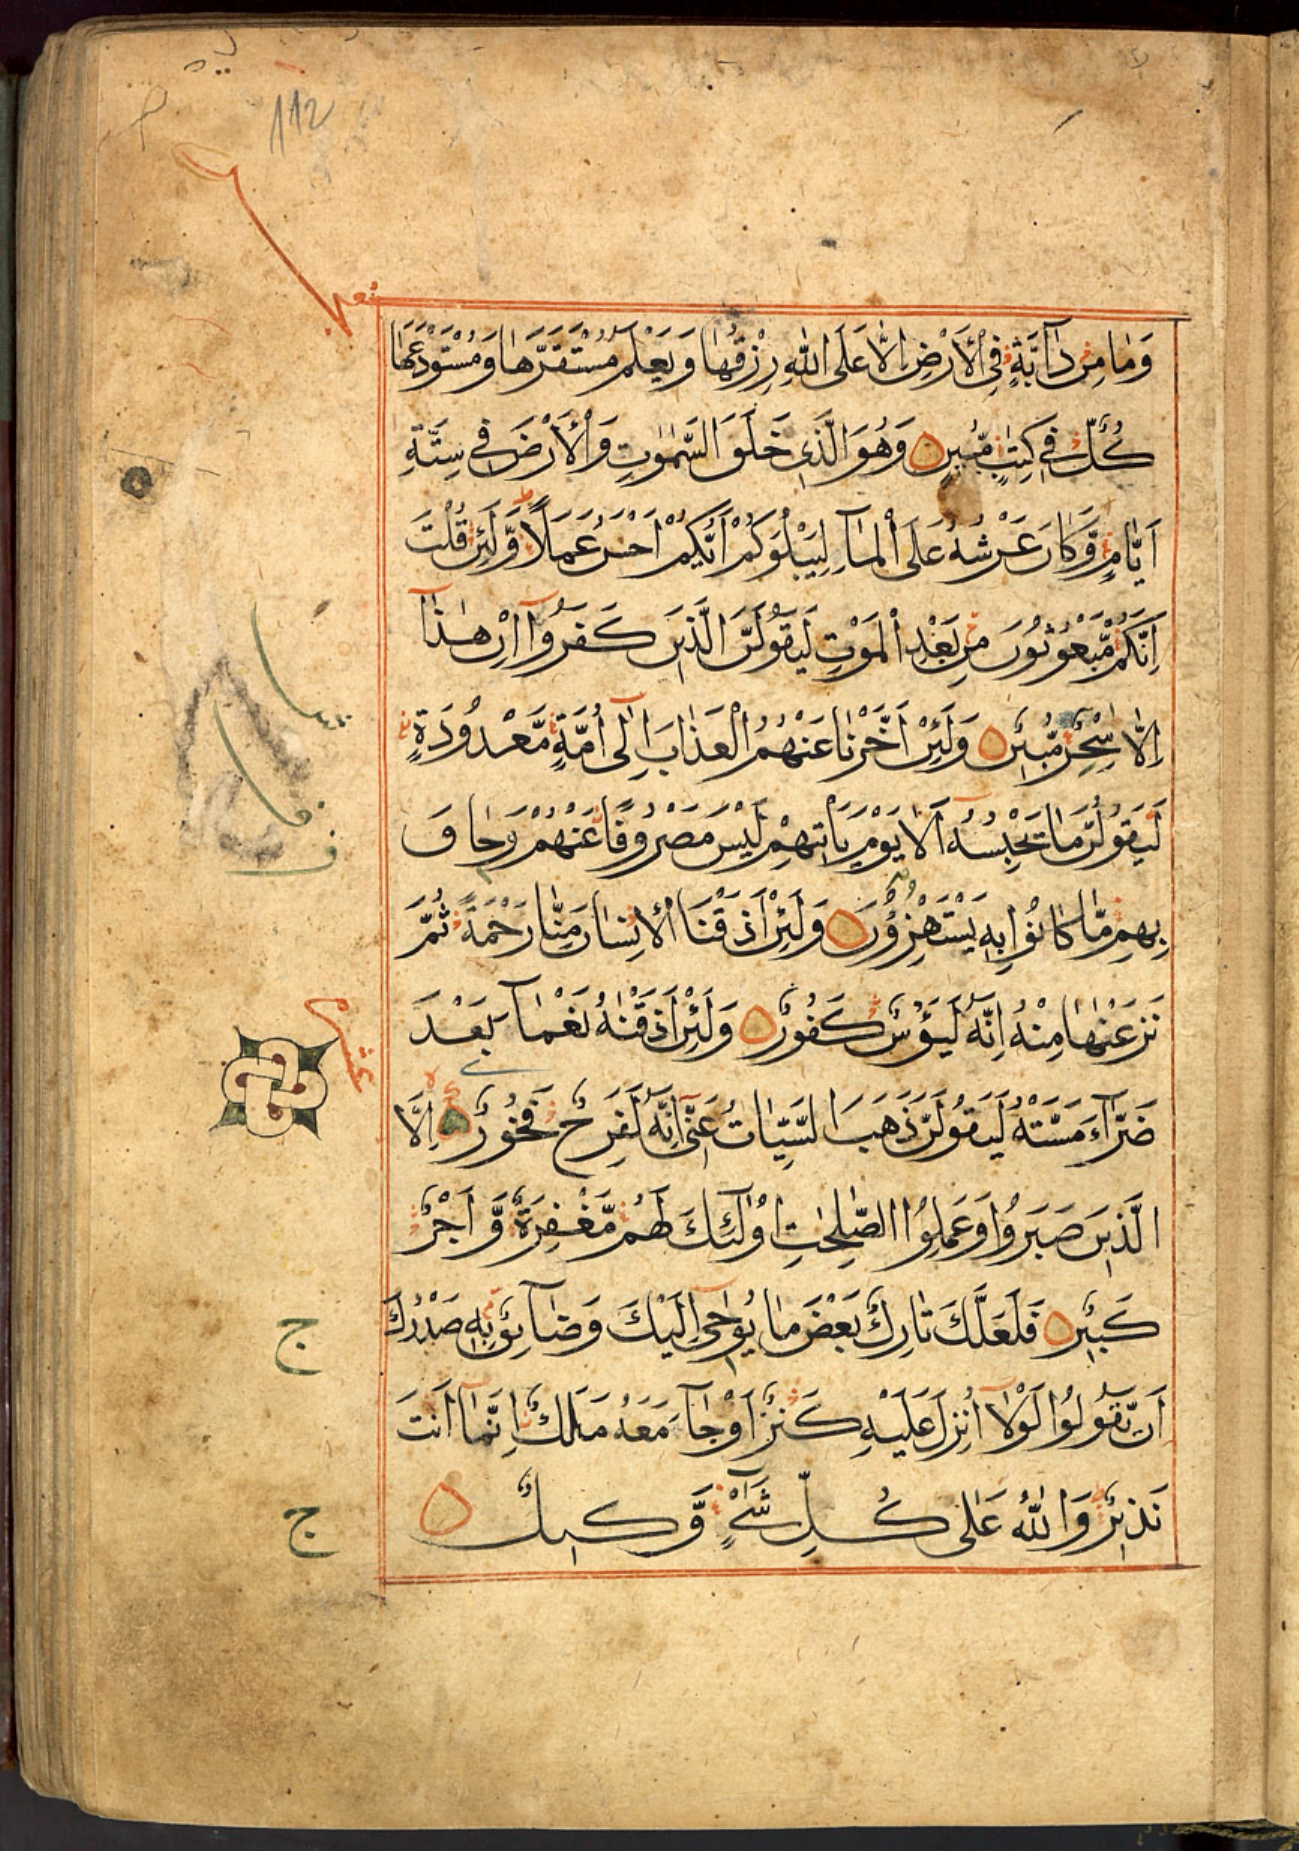 112
وَمَا مِنْ دَآبَّةٍ فِى الْاَرْضِ اِلَّا عَلَى اللّٰهِ رِزْقُهَا وَيَعْلَمُ مُسْتَقَرَّهَا وَمُسْتَوْدَعَهَا
كُلٌّ فِى كِتٰبٍ مُّبِيْنٍ وَهُوَ الَّذِى خَلَقَ السَّمٰوٰتِ وَالْاَرْضَ فِى سِتَّةِ
اَيَّامٍ وَّكَانَ عَرْشُهُ عَلَى الْمَآءِ لِيَبْلُوَكُمْ اَيُّكُمْ اَحْسَنُ عَمَلًا وَّلَئِنْ قُلْتَ
اِنَّكُمْ مَّبْعُوْثُوْنَ مِنْ بَعْدِ الْمَوْتِ لَيَقُوْلَنَّ الَّذِيْنَ كَفَرُوْآ اِنْ هٰذَآ
اِلَّا سِحْرٌ مُّبِيْنٌ وَلَئِنْ اَخَّرْنَا عَنْهُمُ الْعَذَابَ اِلٰٓى اُمَّةٍ مَّعْدُوْدَةٍ
لَيَقُوْلُنَّ مَا يَحْبِسُهُ اَلَا يَوْمَ يَاْتِيْهِمْ لَيْسَ مَصْرُوْفًا عَنْهُمْ وَحَاقَ
بِهِمْ مَّا كَانُوْا بِهِ يَسْتَهْزِءُوْنَ وَلَئِنْ اَذَقْنَا الْاِنْسَانَ مِنَّا رَحْمَةً ثُمَّ
نَزَعْنٰهَا مِنْهُ اِنَّهُ لَيَؤُسٌ كَفُوْرٌ وَلَئِنْ اَذَقْنٰهُ نَعْمَآءَ بَعْدَ
ضَرَّآءَ مَسَّتْهُ لَيَقُوْلَنَّ ذَهَبَ السَّيِّاٰتُ عَنِّىْ اِنَّهُ لَفَرِحٌ فَخُوْرٌ اِلَّا
الَّذِيْنَ صَبَرُوْا وَعَمِلُوا الصّٰلِحٰتِ اُولٰٓئِكَ لَهُمْ مَّغْفِرَةٌ وَّاَجْرٌ
كَبِيْرٌ فَلَعَلَّكَ تَارِكٌ بَعْضَ مَا يُوْحٰٓى اِلَيْكَ وَضَآئِقٌ بِهِ صَدْرُكَ
ج
اَنْ يَّقُوْلُوْا لَوْلَآ اُنْزِلَ عَلَيْهِ كَنْزٌ اَوْ جَآءَ مَعَهُ مَلَكٌ اِنَّمَآ اَنْتَ
نَذِيْرٌ وَاللّٰهُ عَلٰى كُلِّ شَىْءٍ وَّكِيْلٌ
ج